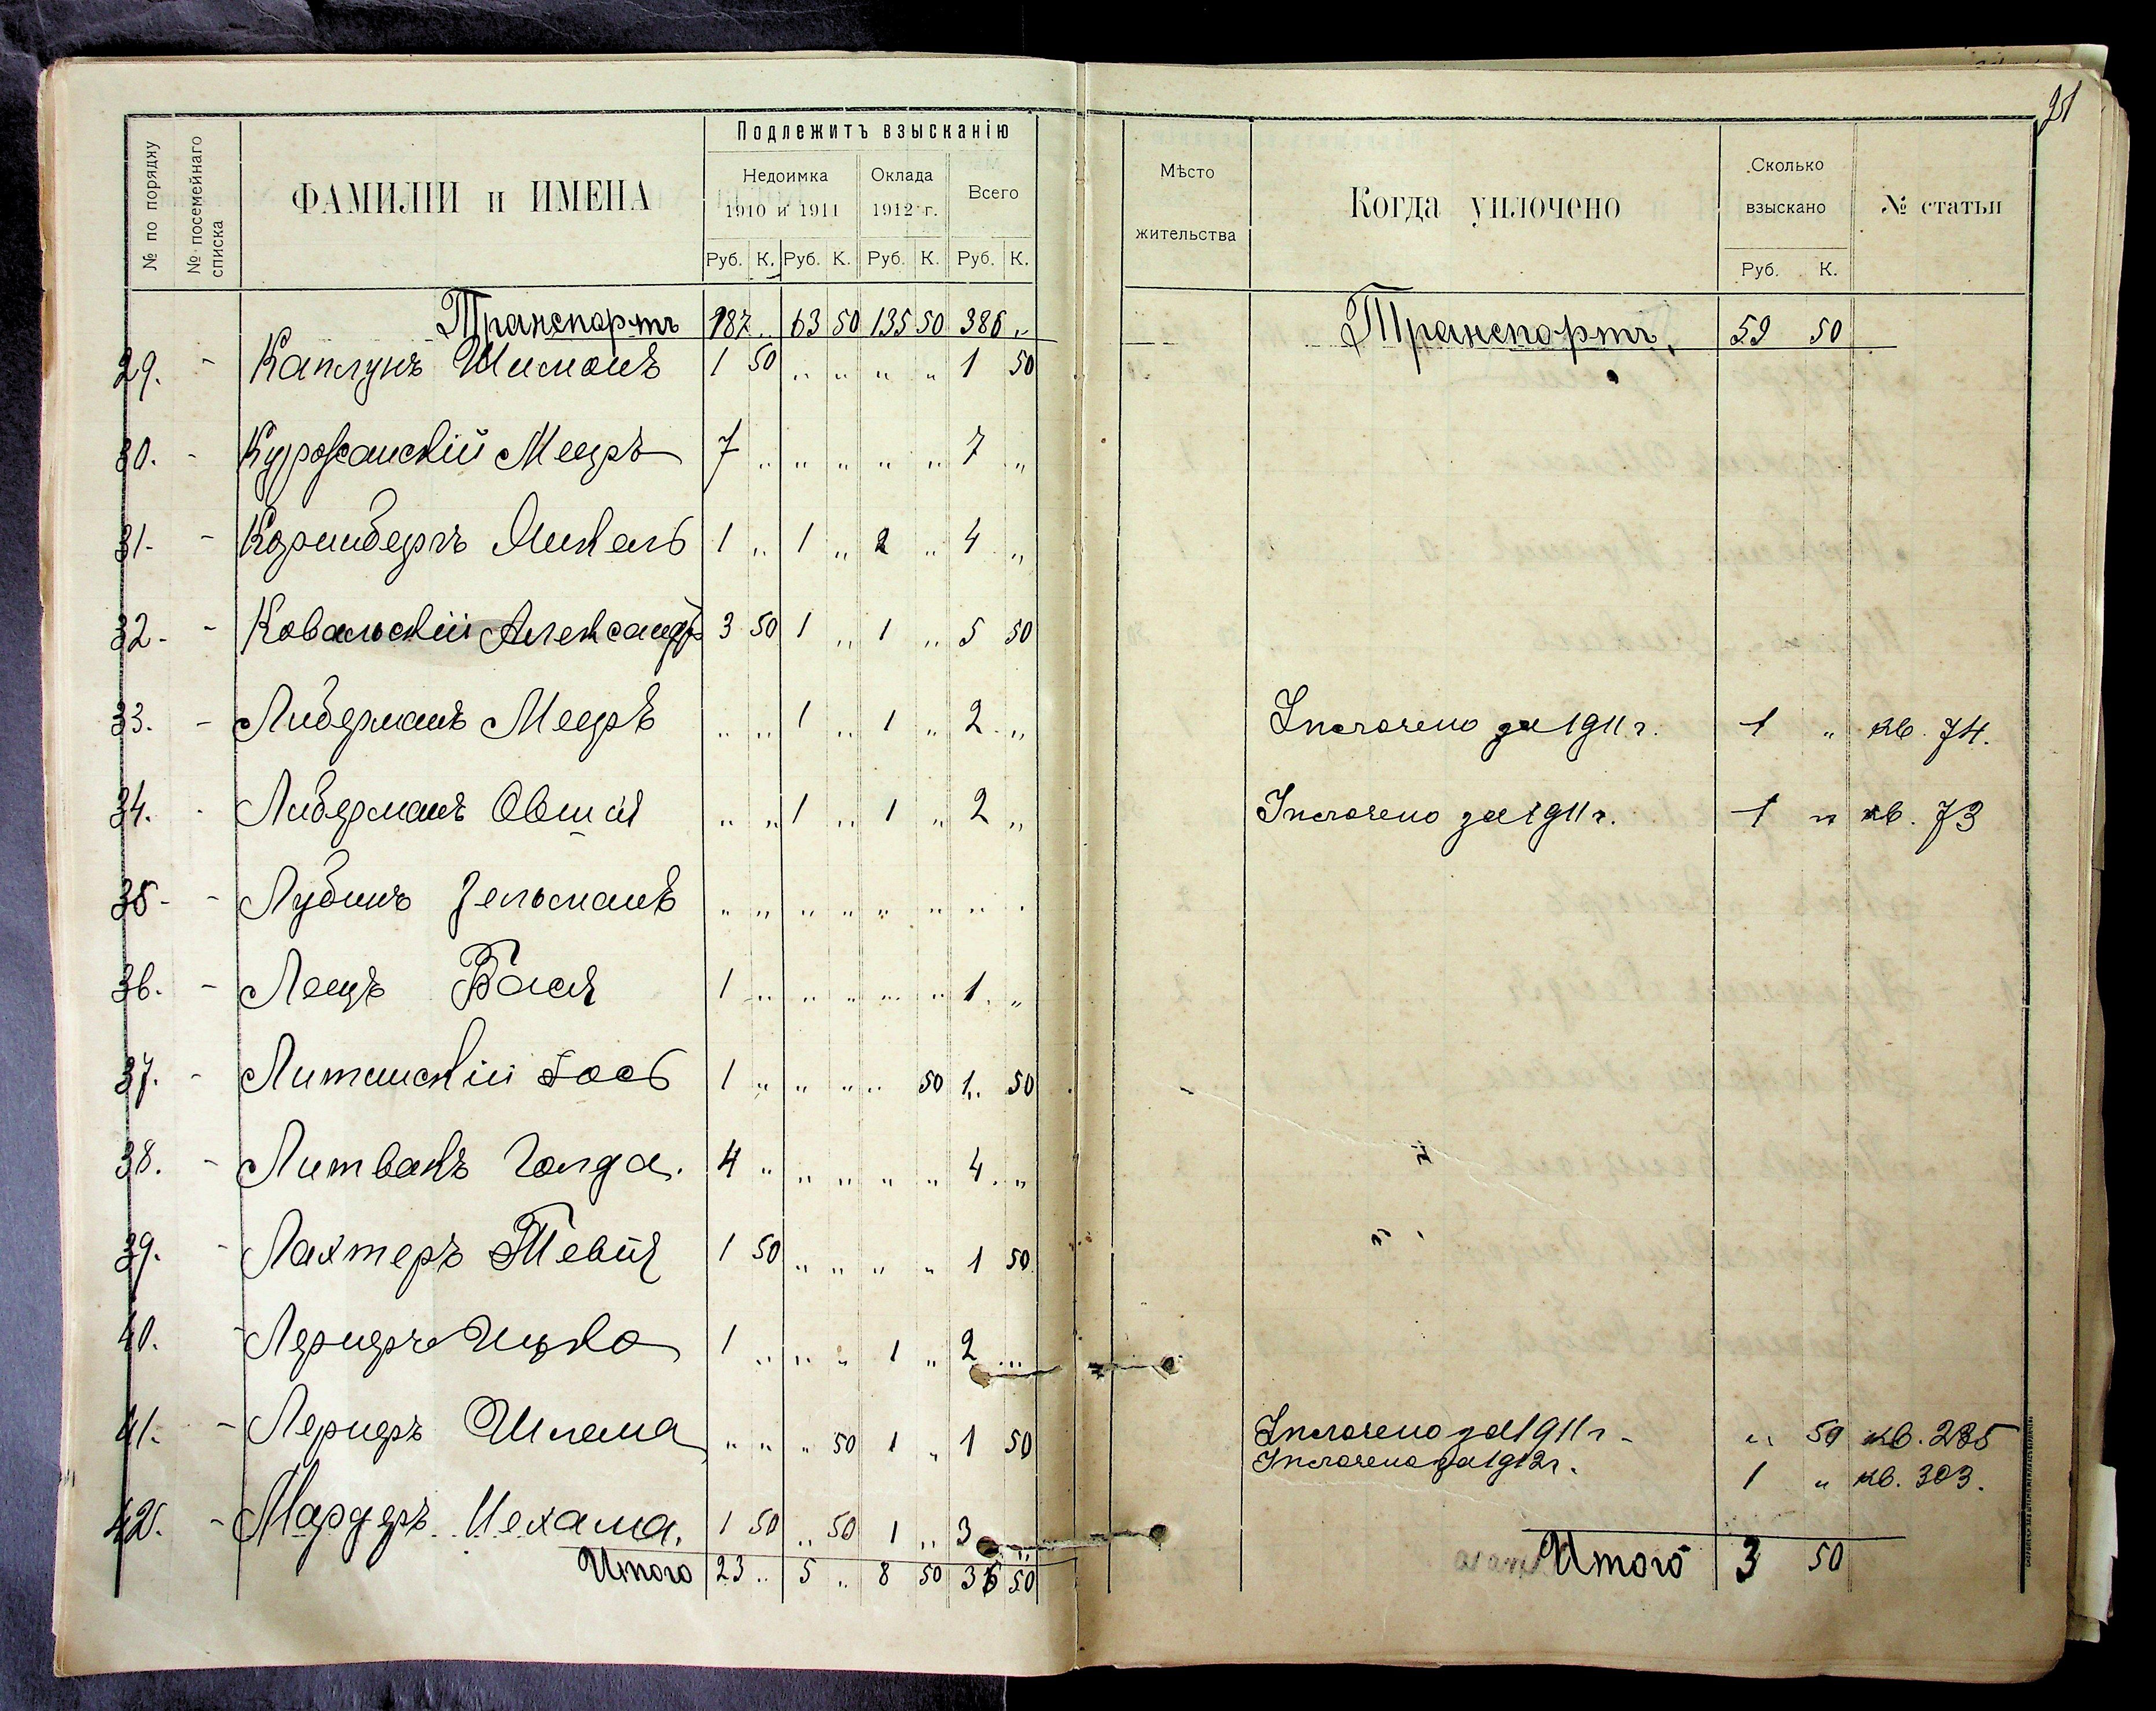 91
№ по порядку
№ посемейнаго списка
ФАМИЛІИ и ИМЕНА
Подлежитъ взысканію
Недоимка 1910 и 1911
Оклада 1912 г.
Всего
Руб. К. Руб. К. Руб. К. Руб. К.
Мѣсто жительства
Когда уплочено
Сколько взыскано
Руб. К.
№ статьи
Транспортъ 187 „ 63 50 135 50 386 „ Транспортъ 59 50
29. - Каплунъ Шимонъ 1 50 „ „ „ „ 1 50
30. - Мееръ 7 „ „ „ „ „ 7 „
31. - 1 „ 1 „ 2 „ 4 „
32. - Ковальскій Александръ 3 50 1 „ 1 „ 5 50
33. - Либерманъ Мееръ „ „ 1 „ 1 „ 2 „ Уплочено за 1911 г. 1 „ кв. 74.
34. - Либерманъ Овшій „ „ 1 „ 1 „ 2 „ Уплочено за 1911 г. 1 „ кв. 73
35. - Лубинъ Зельманъ „ „ „ „ „ „ „ „
36. - Лещъ Бася 1 „ „ „ „ „ 1 „
37. - Литинскій Іось 1 „ „ „ „ 50 1 50
38. - Литвакъ Голда. 4 „ „ „ „ „ 4 „
39. - Лахтеръ Тевія 1 50 „ „ „ „ 1 50
40. - Лернеръ Ицко 1 „ „ „ 1 „ 2 „
41. - Лернеръ Шлема „ „ „ 50 1 „ 1 50 Уплочено за 1911 г. „ 50 кв. 285
Уплочено за 1912 г. 1 „ кв. 303.
42. - Мардеръ Нехама. 1 50 „ 50 1 „ 3 „
Итого 23 „ 5 „ 8 50 36 50 Итого 3 50